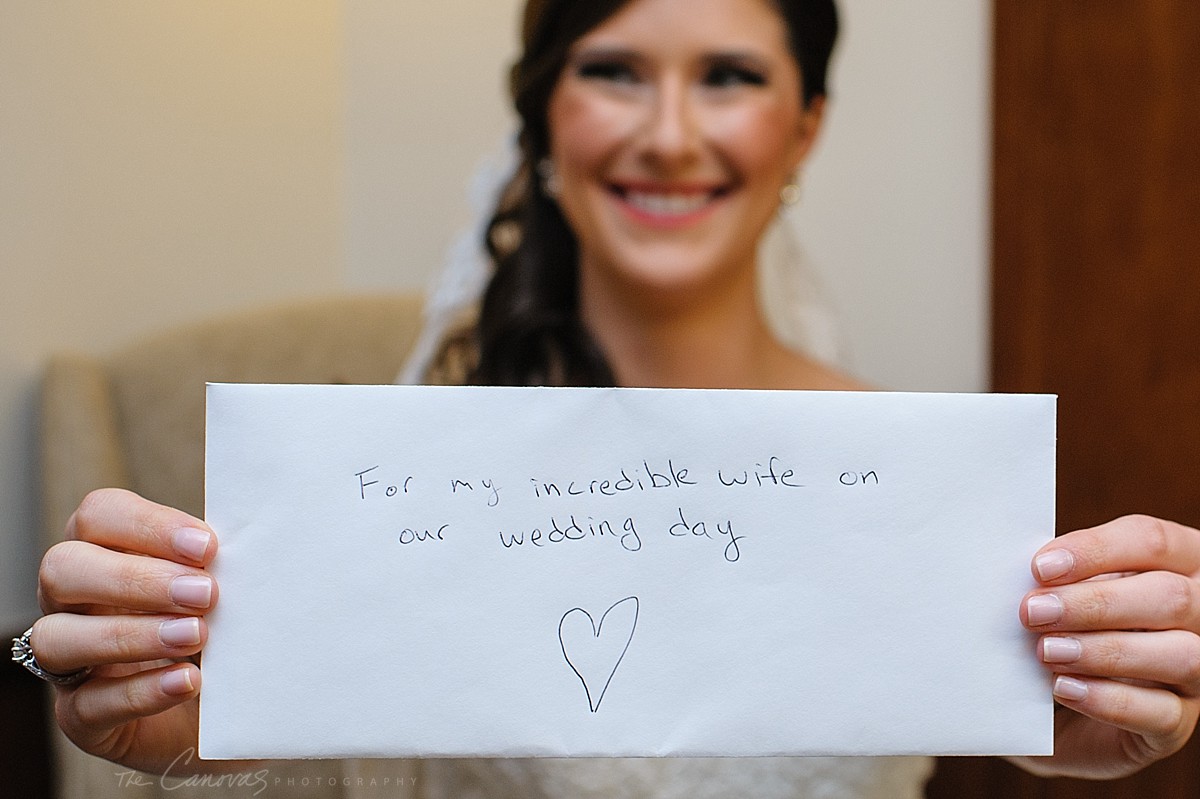 For my incredible wife on
our wedding day
The Canovas PHOTOGRAPHY